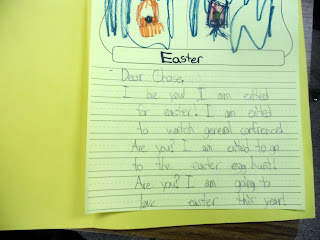 Easter
Dear Chase,
I be you! I am exited
for easter! I am exited
to watch general conference!
Are you? I am exited to go
to the easter egg hunt!
Are you? I am going to
love easter this year!